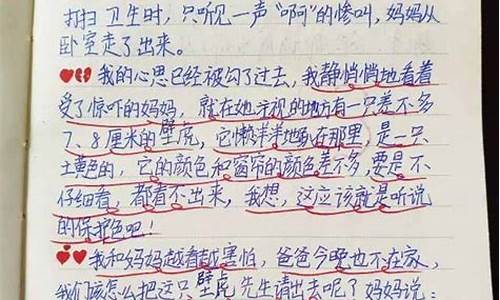 打扫卫生时，只听见一声“啊”的惨叫，妈妈从
卧室走了出来。
我的心思已经被勾了过去，我静悄悄地看着
受了惊吓的妈妈，就在她注视的地方有一只差不多
7、8厘米的壁虎，它懒羊羊地趴在那里，是一只
土黄色的，它的颜色和窗帘的颜色差不多，要是不
仔细看，都看不出来，我想，这应该就是听说
的保护色吧！
我和妈妈越看越害怕，爸爸今晚也不在家，
我们该怎么把这只壁虎先生请出去呢？妈妈说：